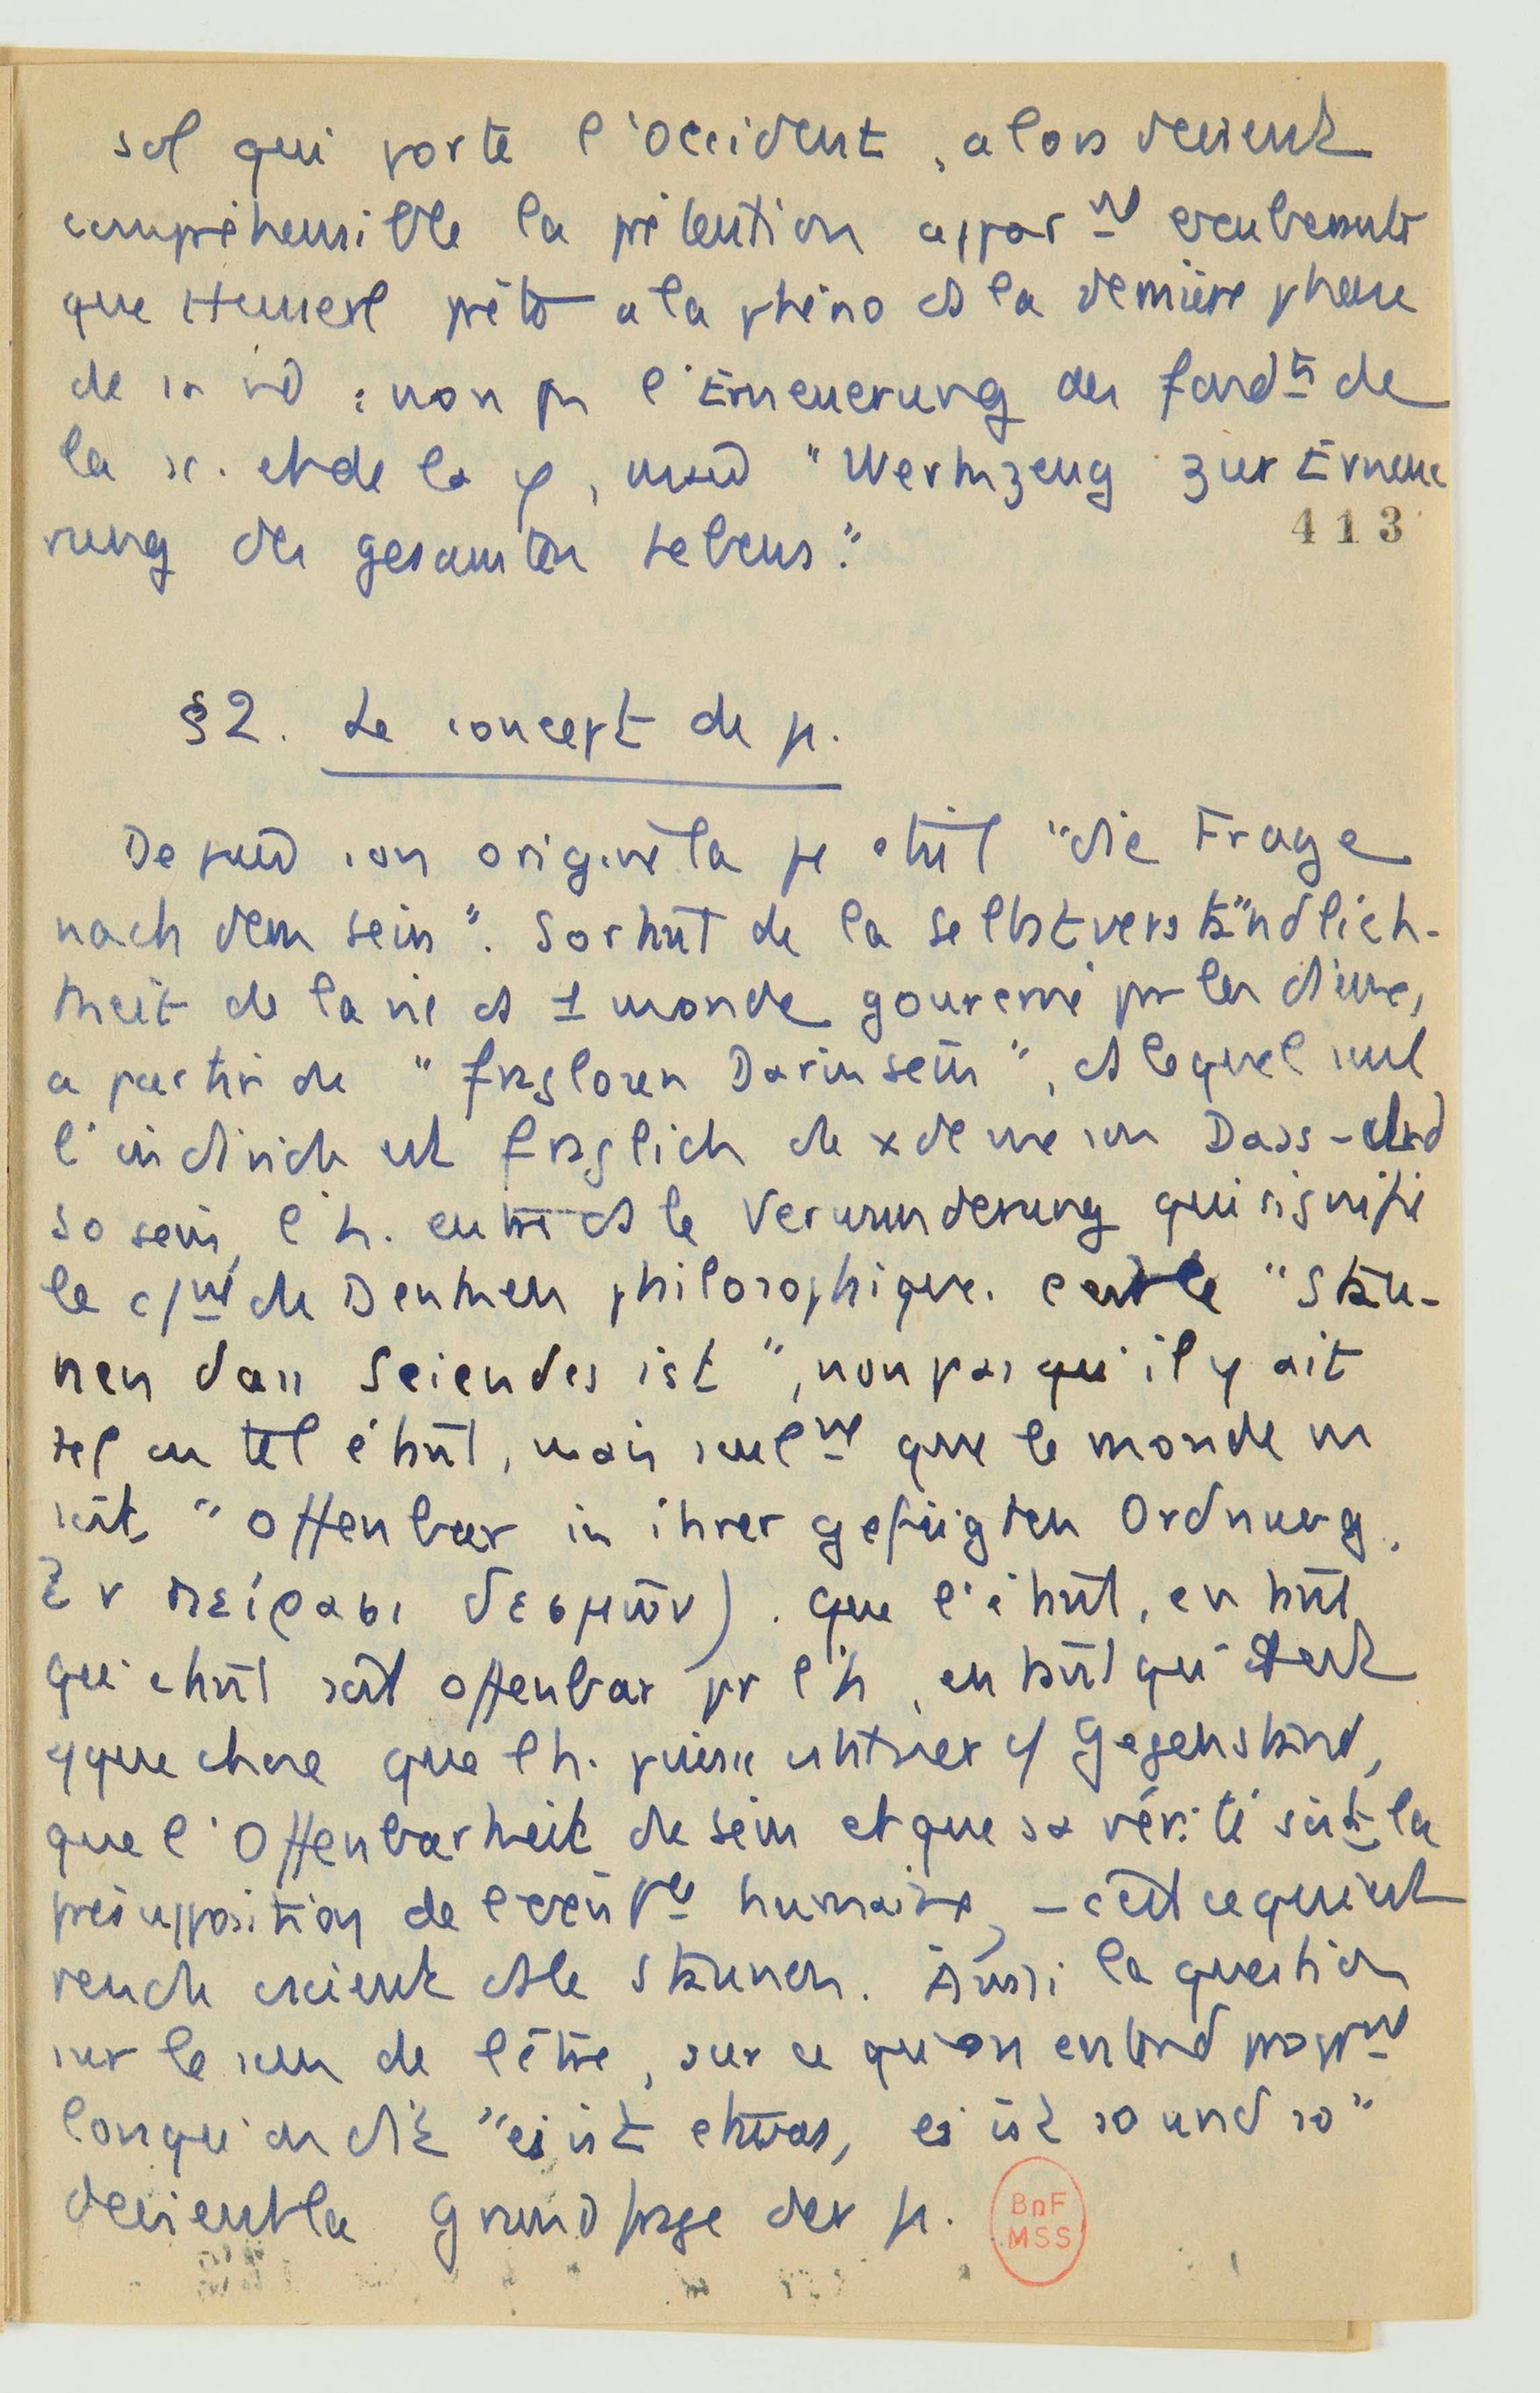 sol qui porte l'Occident, alors devient
compréhensible la prétention appar^nt exubérante
que Husserl prête à la phéno ds la dernière phase
de sa vie : non pr l'Erneuerung des fond^ts de
la sc. et de la φ, mais "Werkzeug zur Erneue
rung des gesamten Lebens."
413
§2. Le concept de ph.
Depuis son origine la ph était "die Frage
nach dem Sein". Sortant de la Selbstverständlich-
keit de la vie ds 1 monde gouverné par les dieux,
à partir du "fraglosen Darinsein", ds lequel seul
l'individu est fraglich de x de me son Dass- und
so sein, l'h. entre ds le Verwunderung qui signifie
le c/nt du Denken philosophique. C'est le "Stau-
nen dass Seiendes ist", non pas qu'il y ait
tel ou tel étant, mais seul^nt que le monde en
soit "offenbar in ihrer gefügten Ordnung.
ἐν πείρασι δεσμῶν). Que l'étant, en tant
qu'étant soit offenbar pr l'h, en tant qu'
qque chose que l'h. puisse c/ Gegenstand,
que l'Offenbarkeit du Sein et que sa vérité soit la
présupposition de humaine, – c'est ce qui est
rendu conscient ds le Staunen. Aussi la question
sur le sens de l'être, sur ce qu'on entend propr^nt
lorsqu'on dit "es ist etwas, es ist so und so"
devient la Grundfrage der ph.
BnF
MSS